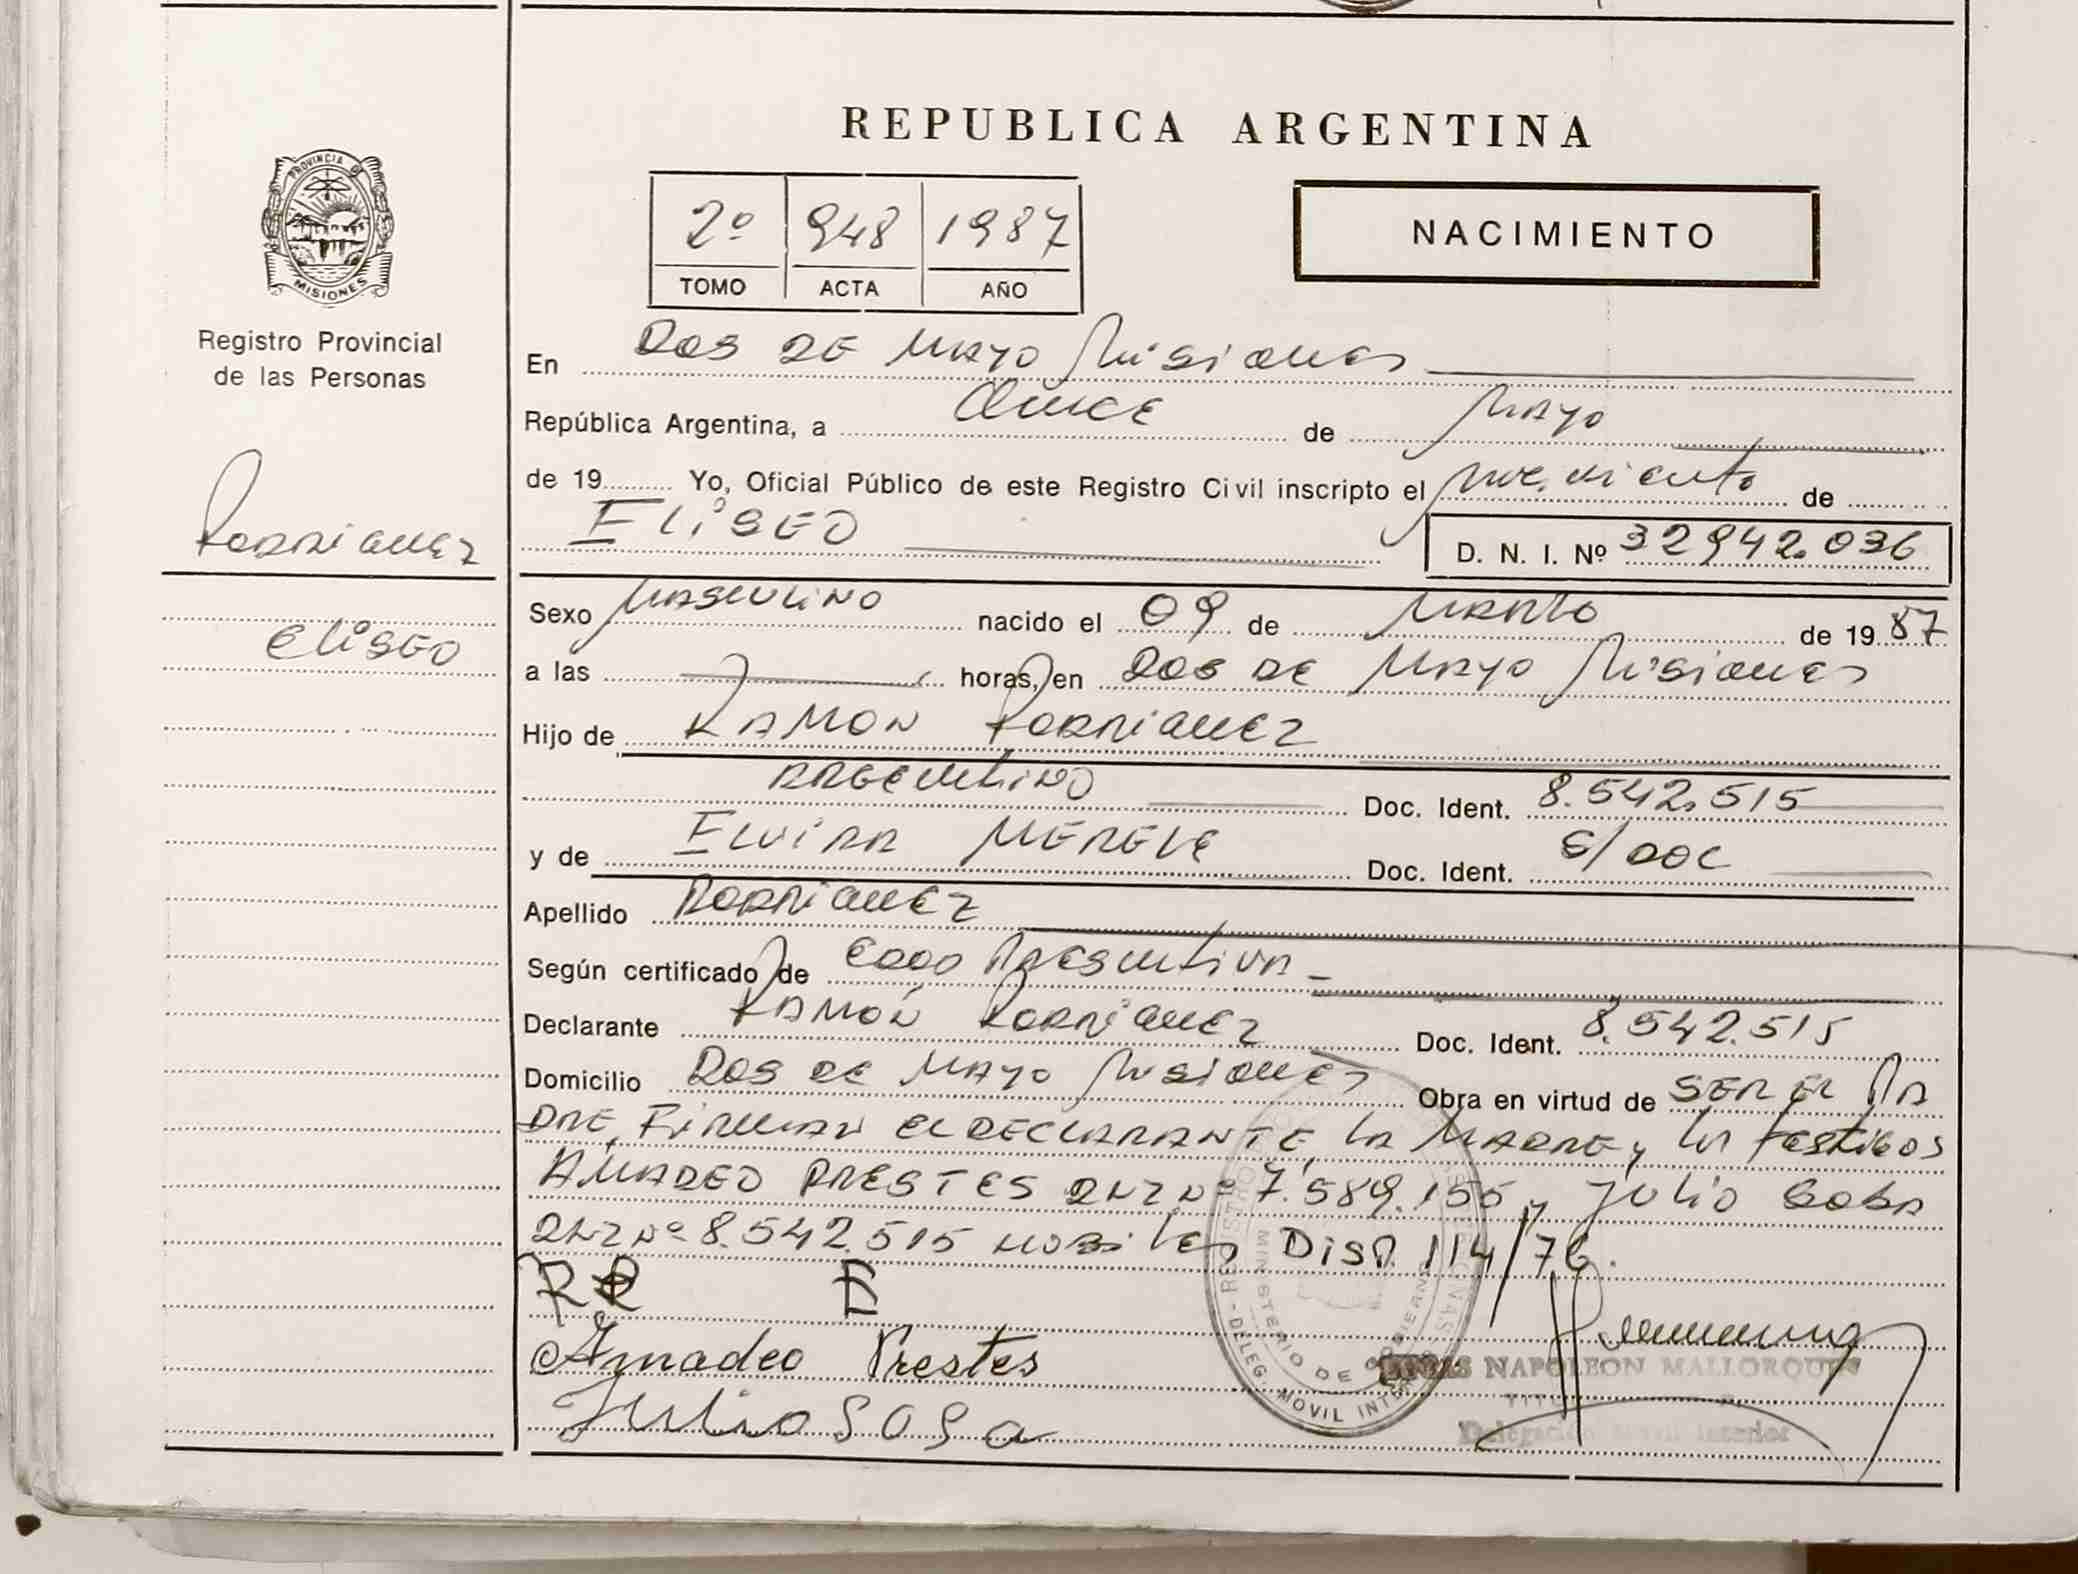 REPUBLICA ARGENTINA
PROVINCIA DE MISIONES
2º 948 1987
TOMO ACTA AÑO
NACIMIENTO
Registro Provincial
de las Personas
En DOS DE MAYO Misiones
República Argentina, a Quince de Mayo
de 19 Yo, Oficial Público de este Registro Civil inscripto el de
ELISEO
D. N. I. Nº 32942.036
Rodriguez
Eliseo
Sexo MASCULINO nacido el 09 de MARZO de 19 87
a las horas, en DOS DE MAYO Misiones
Hijo de RAMON Rodriguez
ARGENTINO Doc. Ident. 8.542.515
y de ELVIRA Doc. Ident. S/DOC
Apellido Rodriguez
Según certificado de
Declarante RAMÓN Rodriguez Doc. Ident. 8.542.515
Domicilio DOS DE MAYO Misiones Obra en virtud de SER EL PA
DRE, FIRMAN EL DECLARANTE, LA MADRE y los testigos
AMADEO PRESTES DNI Nº 7.589.155 y JULIO SOSA
DNI Nº 8.542.515 DISP. 114/76.
Amadeo Prestes
Julio SOSA
NAPOLEON MALLORQUIN
Delegación Móvil Interior
MINISTERIO DE GOBIERNO
DELEG. MOVIL INTERIOR